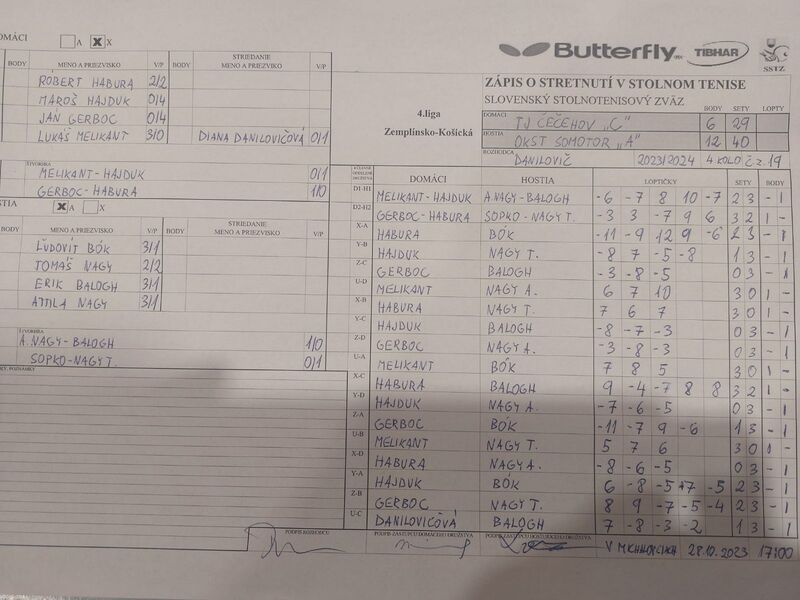 OMÁCI A X X
Butterfly TIBHAR SSTZ
BODY MENO A PRIEZVISKO V/P BODY STRIEDANIE MENO A PRIEZVISKO V/P
RÓBERT HABURA 2/2
MAROŠ HAJDUK 0/4
JAN GERBOC 0/4
LUKÁŠ MELIKANT 3/0 DIANA DANILOVIČOVÁ 0/1
ŠTVORHRA
MELIKANT-HAJDUK 0/1
GERBOC-HABURA 1/0
STIA X A X
BODY MENO A PRIEZVISKO V/P BODY STRIEDANIE MENO A PRIEZVISKO V/P
ĽUDOVÍT BÓK 3/1
TOMÁŠ NAGY 2/2
ERIK BALOGH 3/1
ATTILA NAGY 3/1
ŠTVORHRA
A.NAGY-BALOGH 1/0
SOPKO-NAGY T. 0/1
KY, POZNÁMKY
PODPIS ROZHODCU
4.liga
Zemplínsko-Košická
ZÁPIS O STRETNUTÍ V STOLNOM TENISE
SLOVENSKÝ STOLNOTENISOVÝ ZVÄZ
BODY SETY LOPTY
DOMÁCI TJ ČEČEHOV „C" 6 29
HOSTIA OKST SOMOTOR „A" 12 40
ROZHODCA DANILOVIČ 2023/2024 4 KOLO č.z. 19
DOMÁCI HOSTIA LOPTIČKY SETY BODY
D1-H1 MELIKANT-HAJDUK A.NAGY-BALOGH -6 -7 8 10 -7 2 3 - 1
D2-H2 GERBOC-HABURA SOPKO-NAGY T. -3 3 -7 9 6 3 2 1 -
X-A HABURA BÓK -11 -9 12 9 -6 2 3 - 1
Y-B HAJDUK NAGY T. -8 7 -5 -8 1 3 - 1
Z-C GERBOC BALOGH -3 -8 -5 0 3 - 1
U-D MELIKANT NAGY A. 6 7 10 3 0 1 -
X-B HABURA NAGY T. 7 6 7 3 0 1 -
Y-C HAJDUK BALOGH -8 -7 -3 0 3 - 1
Z-D GERBOC NAGY A. -3 -8 -3 0 3 - 1
U-A MELIKANT BÓK 7 8 5 3 0 1 -
X-C HABURA BALOGH 9 -4 -7 8 8 3 2 1 -
Y-D HAJDUK NAGY A. -7 -6 -5 0 3 - 1
Z-A GERBOC BÓK -11 -7 9 -6 1 3 - 1
U-B MELIKANT NAGY T. 5 7 6 3 0 1 -
X-D HABURA NAGY A. -8 -6 -5 0 3 - 1
Y-A HAJDUK BÓK 6 -8 -5 +7 -5 2 3 - 1
Z-B GERBOC NAGY T. 8 9 -7 -5 -4 2 3 - 1
U-C DANILOVIČOVÁ BALOGH 7 -8 -3 -2 1 3 - 1
PODPIS ZÁSTUPCU DOMÁCEHO DRUŽSTVA PODPIS ZÁSTUPCU HOSŤUJÚCEHO DRUŽSTVA
V MICHALOVCIACH 28.10.2023 17:00